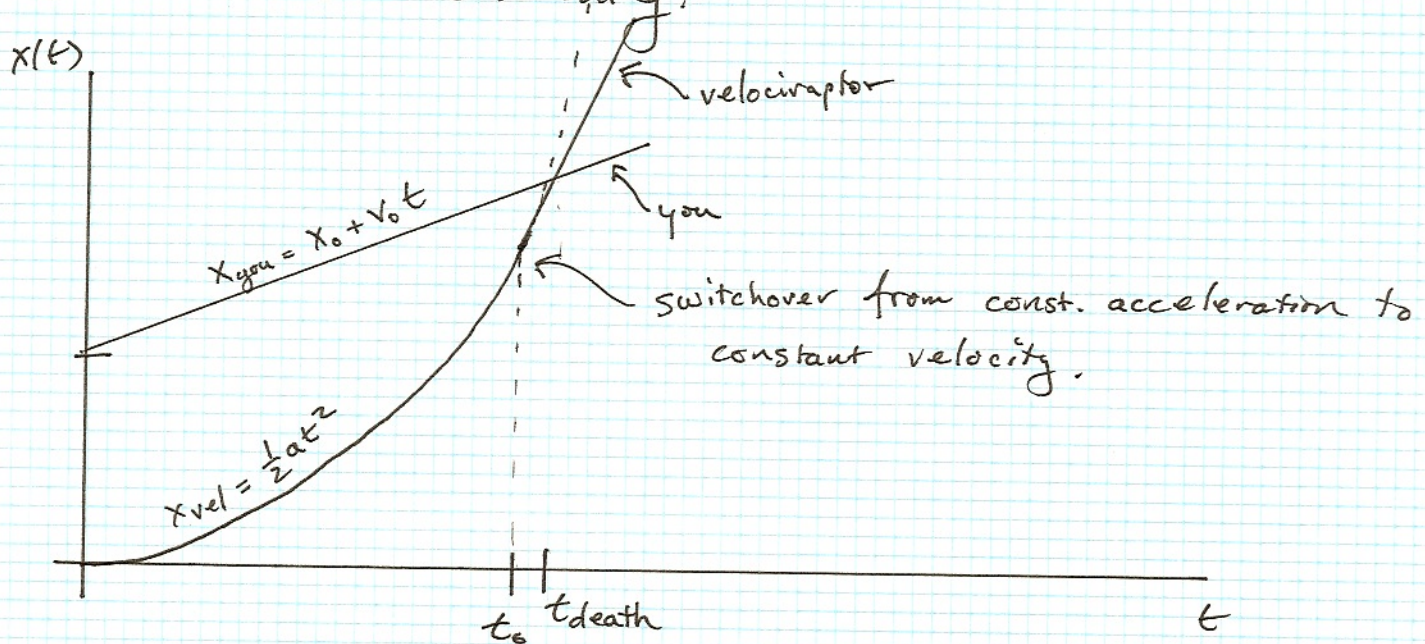 x(t)
velociraptor
you
x you = x₀ + v₀ t
switchover from const. acceleration to
constant velocity.
x vel = ½ at²
t₀ t death
t